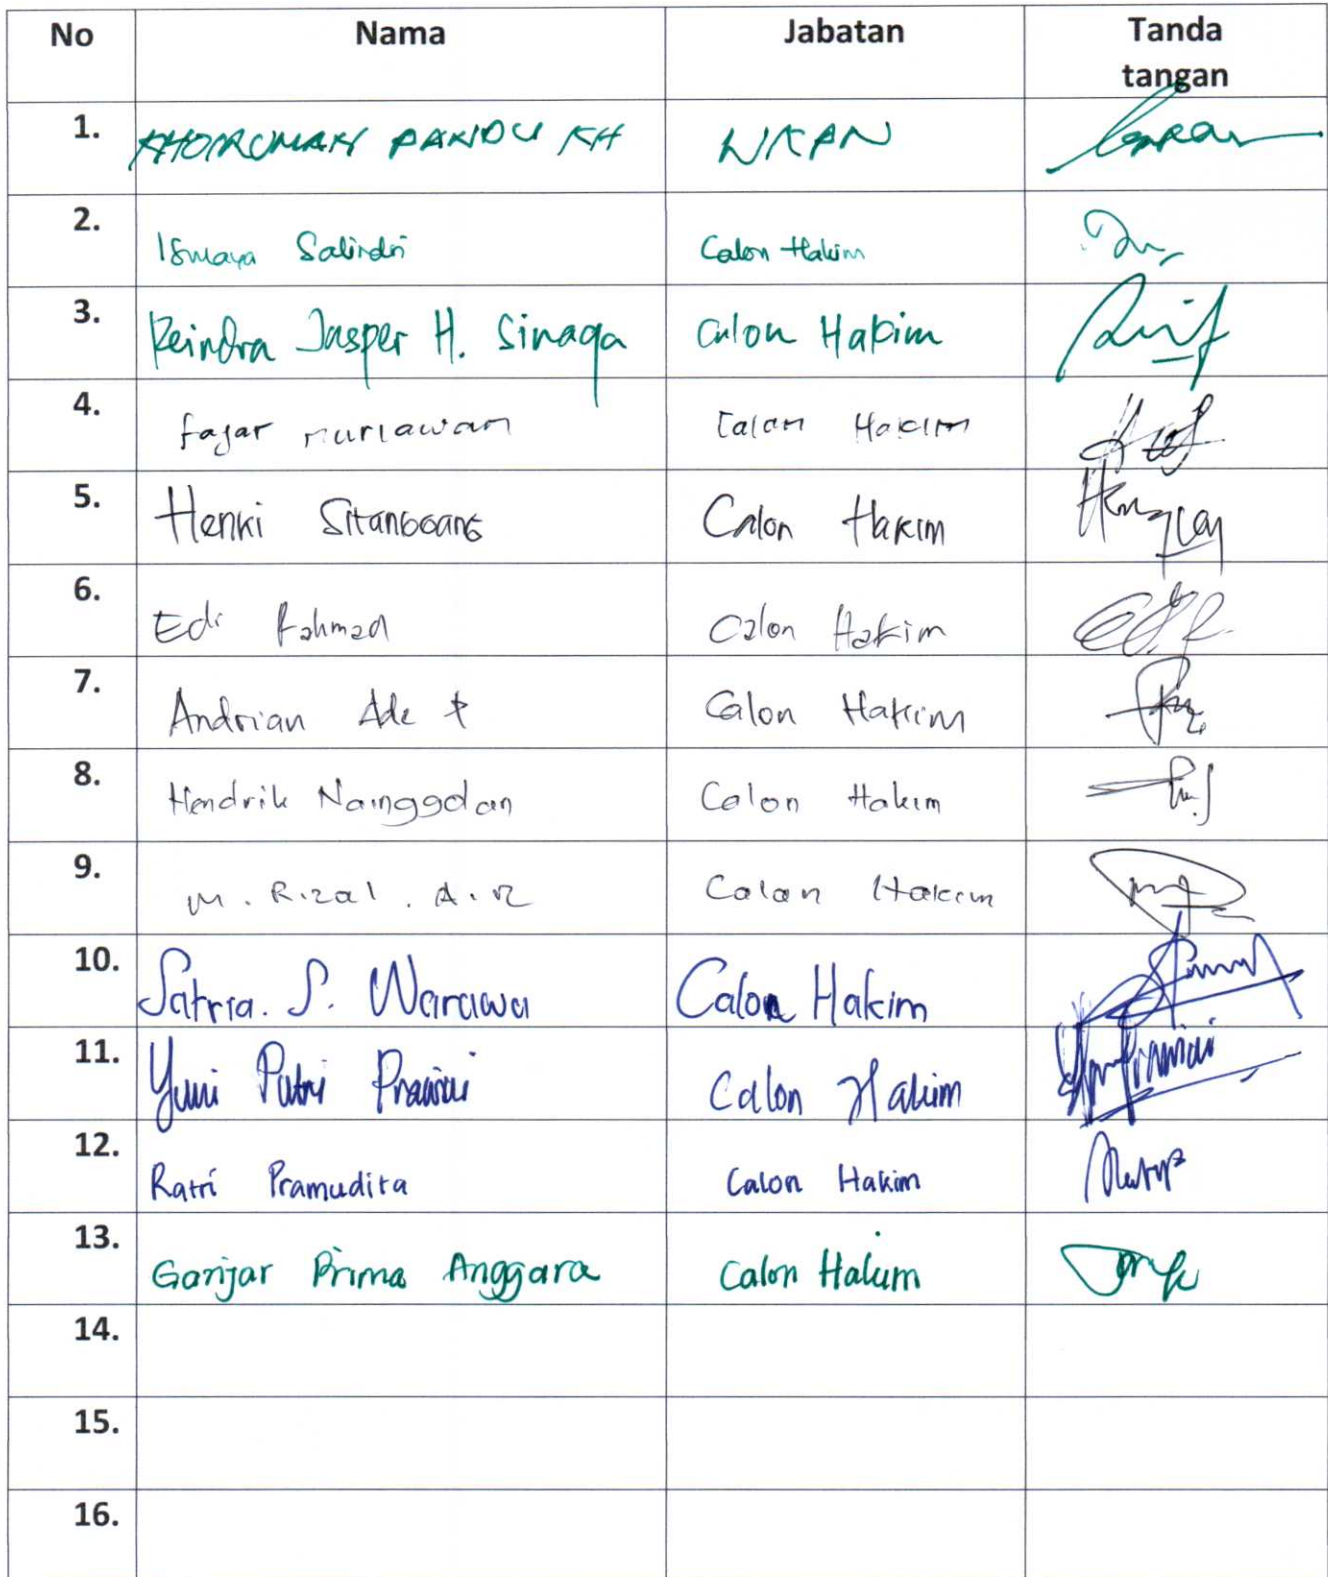 No Nama Jabatan Tanda
tangan
1. KHOIRUMAN PANDU KH WKPN
2. Ismaya Salindri Calon Hakim
3. Reindra Jasper H. Sinaga Calon Hakim
4. Fajar nuriawan Calon Hakim
5. Henki Sitanggang Calon Hakim
6. Edi Rahmad Calon Hakim
7. Andrian Ade Calon Hakim
8. Hendrik Nainggolan Calon Hakim
9. M. Rizal. A. R Calon Hakim
10. Satria. S. Warawa Calon Hakim
11. Yuni Putri Prawini Calon Hakim
12. Ratri Pramudita Calon Hakim
13. Ganjar Prima Anggara Calon Hakim
14.
15.
16.